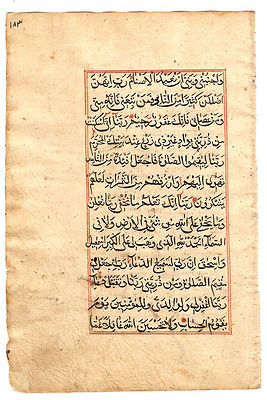 ١٨٣
واجنبنى وبنى ان نعبد الاصنام رب انهن
اضللن كثيرا من الناس فمن تبعنى فانه منى
ومن عصانى فانك غفور رحيم ربنا انى اسكنت
من ذريتى بواد غير ذى زرع عند بيتك المحرم
ربنا ليقيموا الصلوة فاجعل افئدة من الناس
تهوى اليهم وارزقهم من الثمرات لعلهم
يشكرون ربنا انك تعلم ما نخفى وما نعلن
وما يخفى على الله من شئ فى الارض ولا فى
السماء الحمد لله الذى وهب لى على الكبر اسمعيل
واسحق ان ربى لسميع الدعاء رب اجعلنى
مقيم الصلوة ومن ذريتى ربنا وتقبل دعاء
ربنا اغفر لى ولوالدى وللمؤمنين يوم
يقوم الحساب ولا تحسبن الله غافلا عما